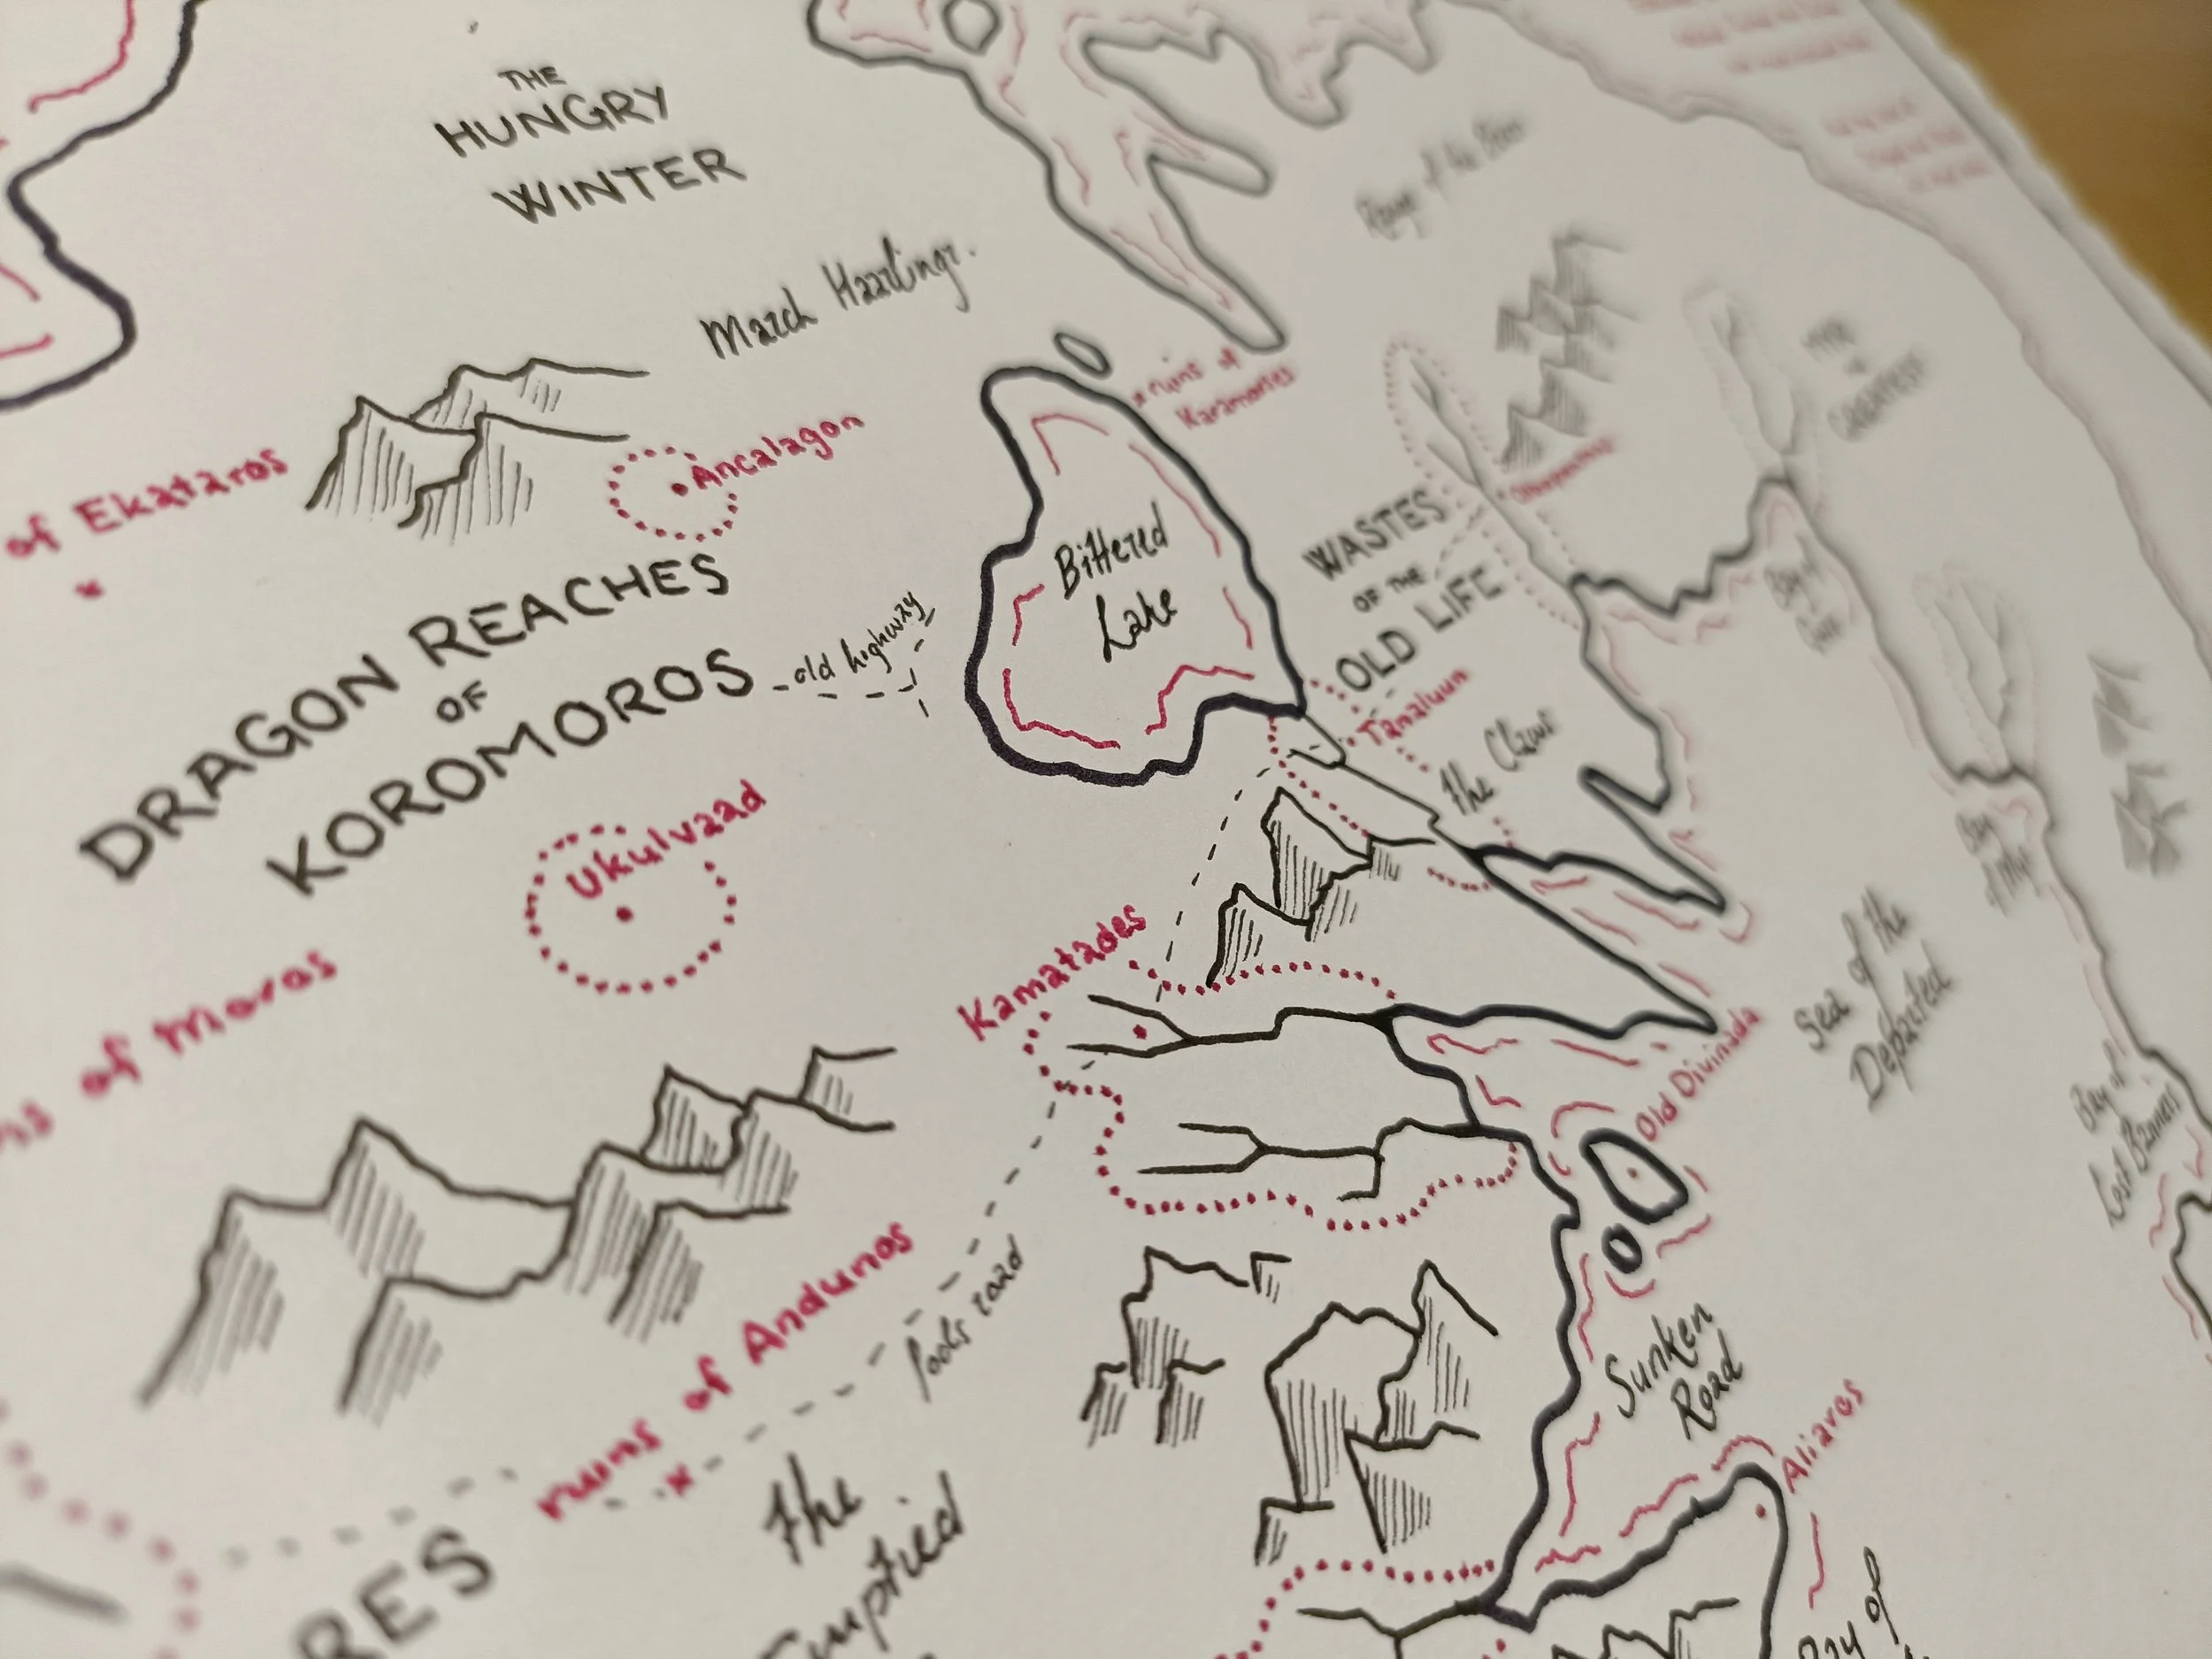 THE
HUNGRY
WINTER
March Haarlingr.
of Ekataros
Ancalagon
DRAGON REACHES
OF
KOROMOROS
old highway
Bittered
Lake
ruins of
Karamortes
Range of the
WASTES
OF THE
OLD LIFE
Tanaluun
The Claws
Ukulvaad
of Moros
Kamatades
Old Divinada
Sea of the
Departed
Bay of
Lost Banners
ruins of Andunos
fools road
Sunken
Road
Aliaros
The
RES
Bay of